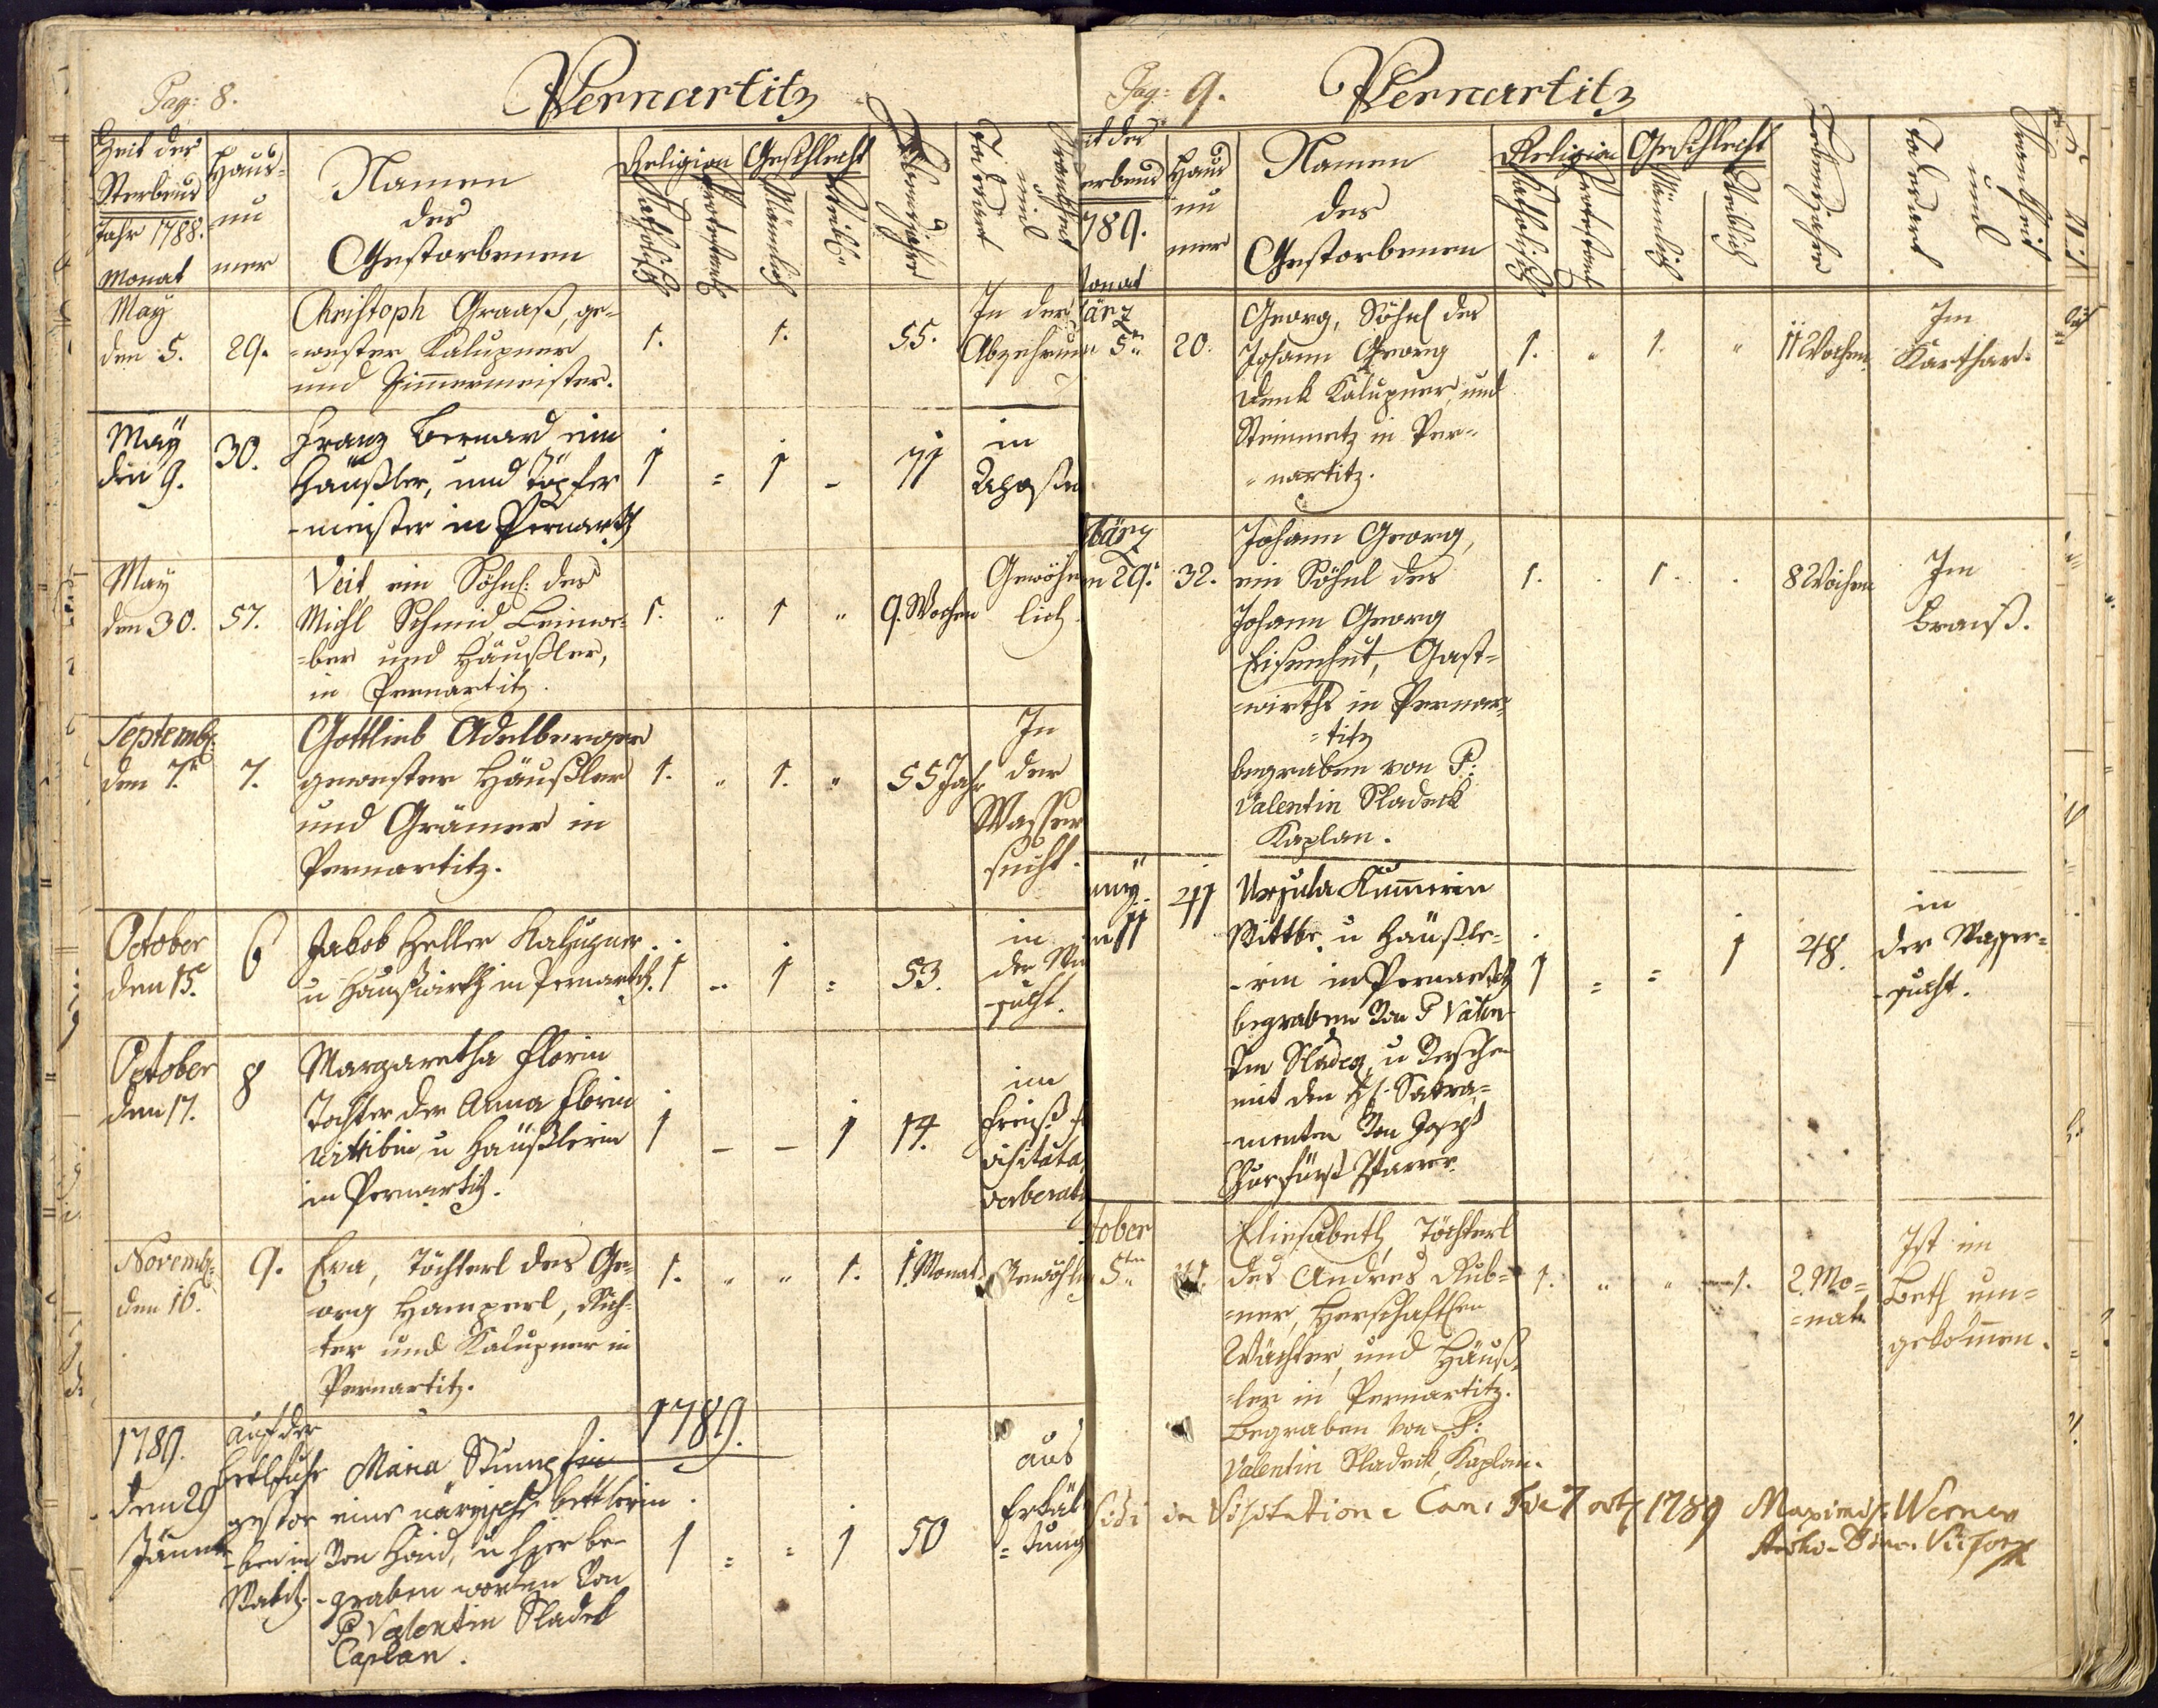 Pag: 8.
Pernartitz
Zeit des
Sterbens
Jahr 1788.
Monat
Haus-
nu
mer
Namen
der
Gestorbenen
Religion
Katholisch
Protestant
Geschlecht
Männlich
Weibl.
Lebensjahre
Krankheit
und
Todesart
May
den 5.
29.
Christoph Graaß, ge-
-wester Kalupner
und Zimmermeister.
1.
1.
55.
In der
Abzehrun
May
den 9.
30.
Franz Bernard ein
Häußler, und Töpfer
-meister in Pernartitz
1
=
1
-
71
in
May
den 30.
57.
Veit, ein Söhnl: des
Michl Schmid Leinwe-
-ber und Häußler,
in Pernartitz.
1.
"
1
"
9. Wochen
Gewöhn
lich.
Septemb:
den 7.
7.
Gottlieb Adelberger
gewester Häußler
und Grämer in
Pernartitz.
1.
"
1.
"
55 Jahr
In
der
Wasser
sucht.
October
den 15.
6
Jakob Heller Kalupner
u Haußwirth in Pernartitz.
1
--
1
=
53.
in
der
-sucht.
October
den 17.
8
Margaretha Florin
Tochter der Anna Florin
Wittibin, u Häußlerin
in Pernartitz.
1
-
-
1
14.
im
Novemb:
den 16.
9.
Eva, Töchterl des Ge-
-org Hamperl, Rich-
-ter und Kalupner in
Pernartitz.
1.
"
"
1.
1. Monat.
Gewöhnli
1789.
1789.
den 29
Jänner
auf der
gestor
-ben in
Maria Stumpfin
eine närrische Bettlerin
von Haid, u hier be-
-graben worden von
P Valentin Sladek
Caplan.
1
=
=
1
50
aus
Erkäl
=tung
Pag: 9.
Pernartitz
it des
erbens
789.
Monat
Haus
nu
mer
Namen
der
Gestorbenen
Religion
Katholisch
Protestant
Geschlecht
Männlich
Weiblich
Lebensjahre
Krankheit
und
Todesart
ärz
5
20.
Georg, Söhnl des
Johann Georg
Denk Kalupner, und
Steinmetz in Per-
-nartitz.
1.
"
1.
"
11 Wochen.
Im
Karthar.
März
n 29.
32.
Johann Georg,
ein Söhnl des
Johann Georg
Eisenhut, Gast-
-wirths in Pernar-
-titz
begraben von P:
Valentin Sladeck
Kaplan.
1.
.
1.
.
8 Wochen
Im
Brand.
may
n 11
41
Ursula Kummerin
Wittbe u Häußle-
-rin in Pernartitz
begraben von P Valen-
tin Sladeg, u Versehen
mit den Hl. Sakra-
-menten von Joseph
Churfürst Pfarrer.
1
=
=
1
48.
in
der Wasser-
-sucht.
tober
5ten
Eliesabeth, Töchterl
des Andres Rub-
-ner, Herrschaftlen
Wächter und Häuß-
-ler in Pernartitz.
Begraben von P:
Valentin Sladeck, Kaplan.
1.
"
"
1.
2. Mo-
-nat.
Ist im
Beth um-
gekommen.
Vidi in Visitatione Can: die 7 octb 1789 Maximil: Werner